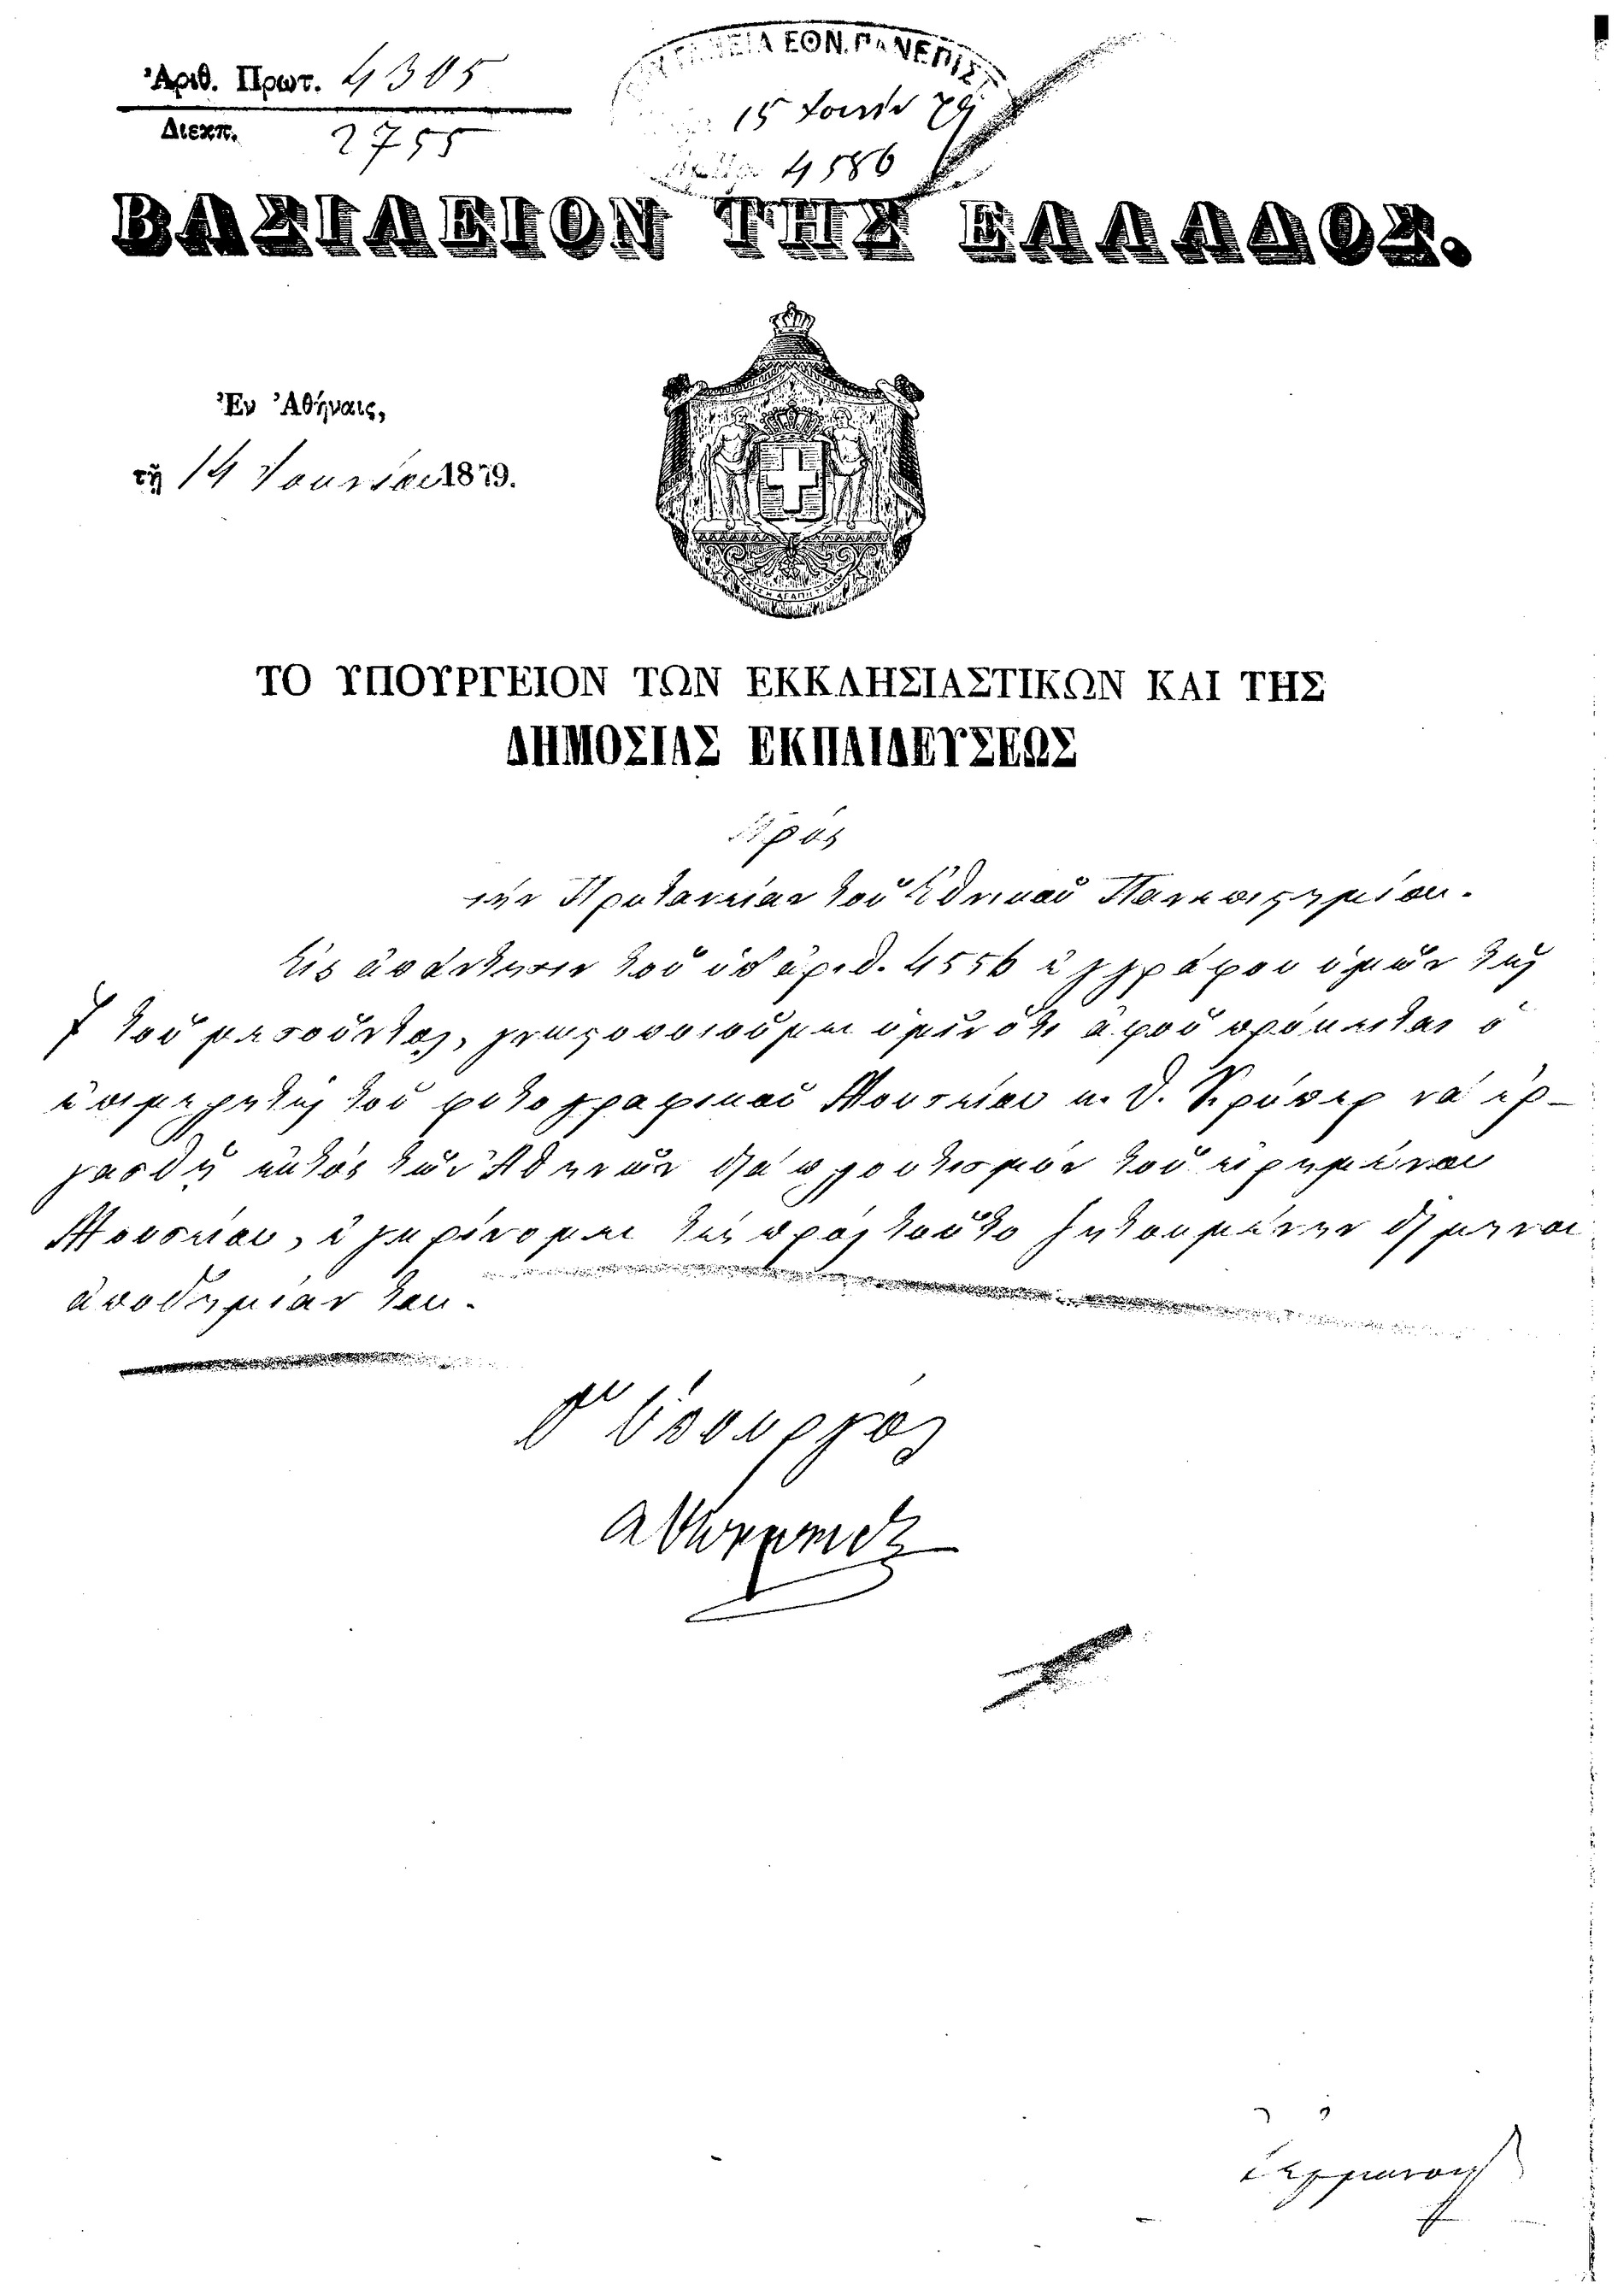 Ἀριθ. Πρωτ. 4305
Διεκπ. 2755
ΕΘΝ. ΠΑΝΕΠΙΣΤ
15 Ιουνίου 79
4586
ΒΑΣΙΛΕΙΟΝ ΤΗΣ ΕΛΛΑΔΟΣ.
Ἐν Ἀθήναις,
τῇ 14 Ἰουνίου 1879.
ΤΟ ΥΠΟΥΡΓΕΙΟΝ ΤΩΝ ΕΚΚΛΗΣΙΑΣΤΙΚΩΝ ΚΑΙ ΤΗΣ
ΔΗΜΟΣΙΑΣ ΕΚΠΑΙΔΕΥΣΕΩΣ
Πρὸς
τὴν Πρυτανείαν τοῦ Ἐθνικοῦ Πανεπιστημίου.
Εἰς ἀπάντησιν τοῦ ὑπ' ἀριθ. 4556 ἐγγράφου ὑμῶν τῆς
7 τοῦ μεσοῦντος, γνωστοποιοῦμεν ὑμῖν ὅτι ἀφοῦ πρόκειται ὁ
ἐπιμελητὴς τοῦ φυτογραφικοῦ Μουσείου κ. Θ. Κρύπερ νὰ ἐρ-
γασθῇ ἐκτὸς τῶν Ἀθηνῶν διὰ πλουτισμὸν τοῦ εἰρημένου
Μουσείου, ἐγκρίνομεν τὴν πρὸς τοῦτο ζητουμένην δίμηνον
ἀποδημίαν του.
Ὁ Ὑπουργὸς